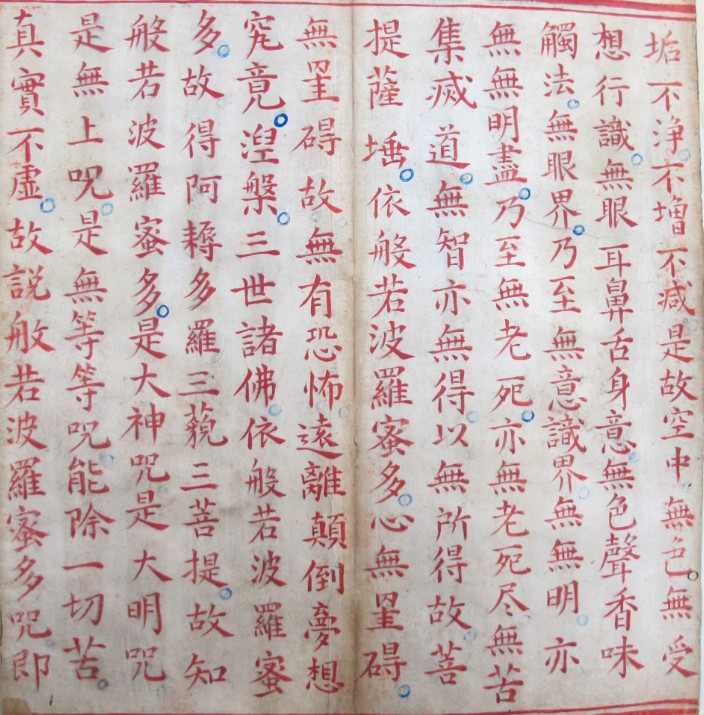 垢不净不增不减是故空中無色無受
想行識無眼耳鼻舌身意無色聲香味
觸法無眼界乃至無意識界無無明亦
無無明盡乃至無老死亦無老死尽無苦
集滅道無智亦無得以無所得故菩
提薩埵依般若波羅蜜多心無罣碍
無罣碍故無有恐怖遠離顛倒夢想
究竟湼槃三世諸佛依般若波羅蜜
多故得阿耨多羅三藐三菩提故知
般若波羅蜜多是大神咒是大明咒
是無上咒是無等等咒能除一切苦
真實不虛故説般若波羅蜜多咒即